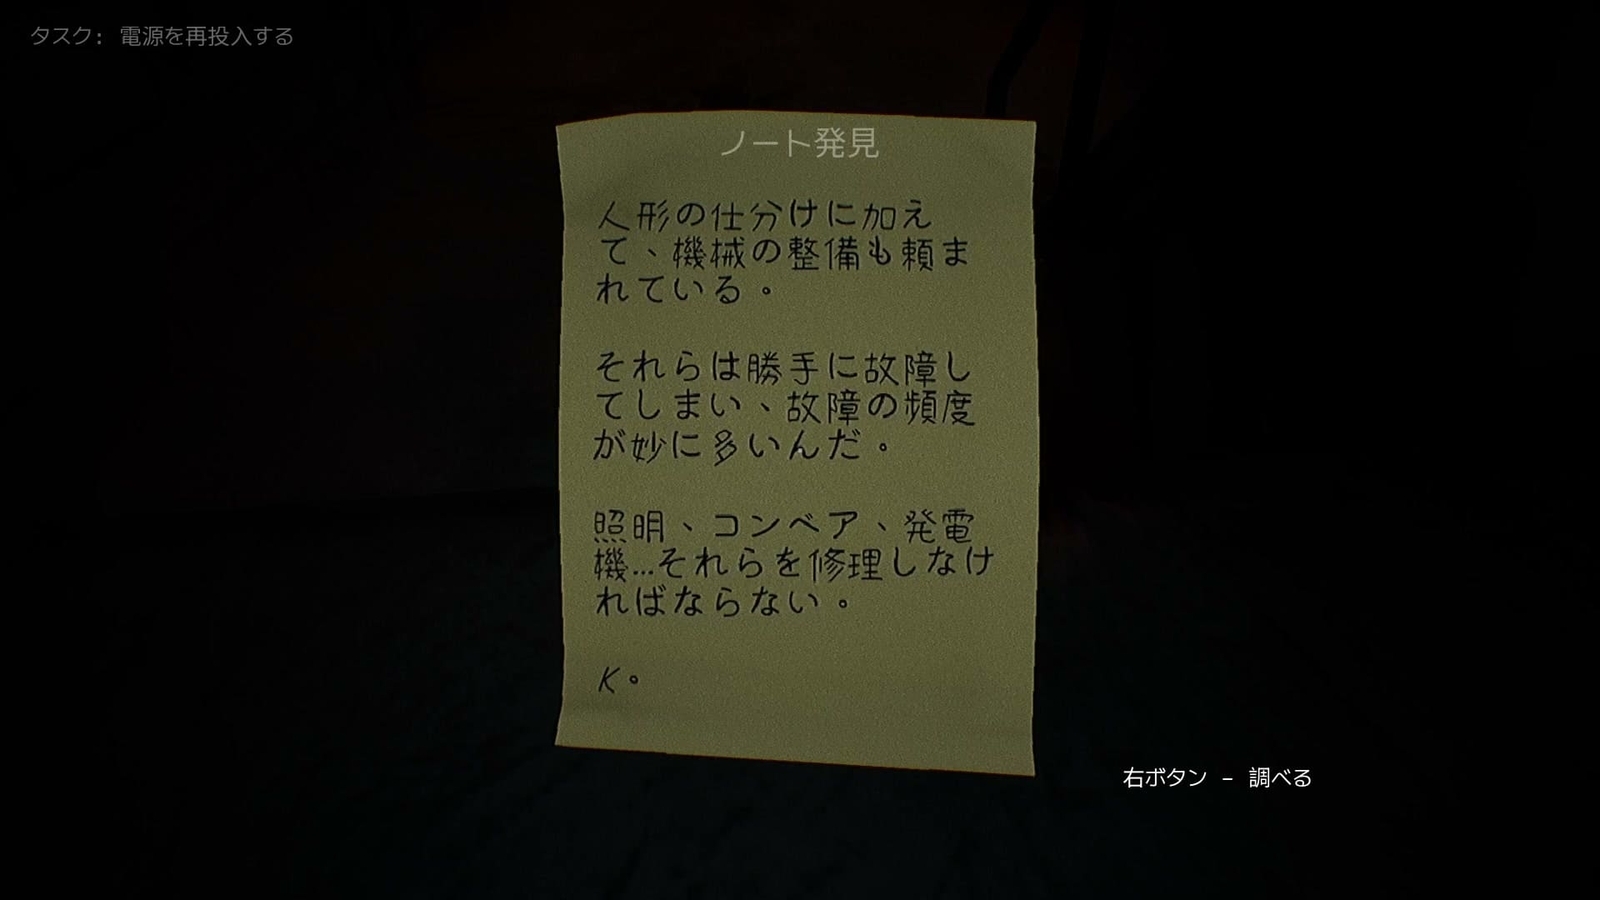 タスク: 電源を再投入する
ノート発見
人形の仕分けに加え
て、機械の整備も頼ま
れている。
それらは勝手に故障し
てしまい、故障の頻度
が妙に多いんだ。
照明、コンベア、発電
機…それらを修理しなけ
ればならない。
K。
右ボタン - 調べる